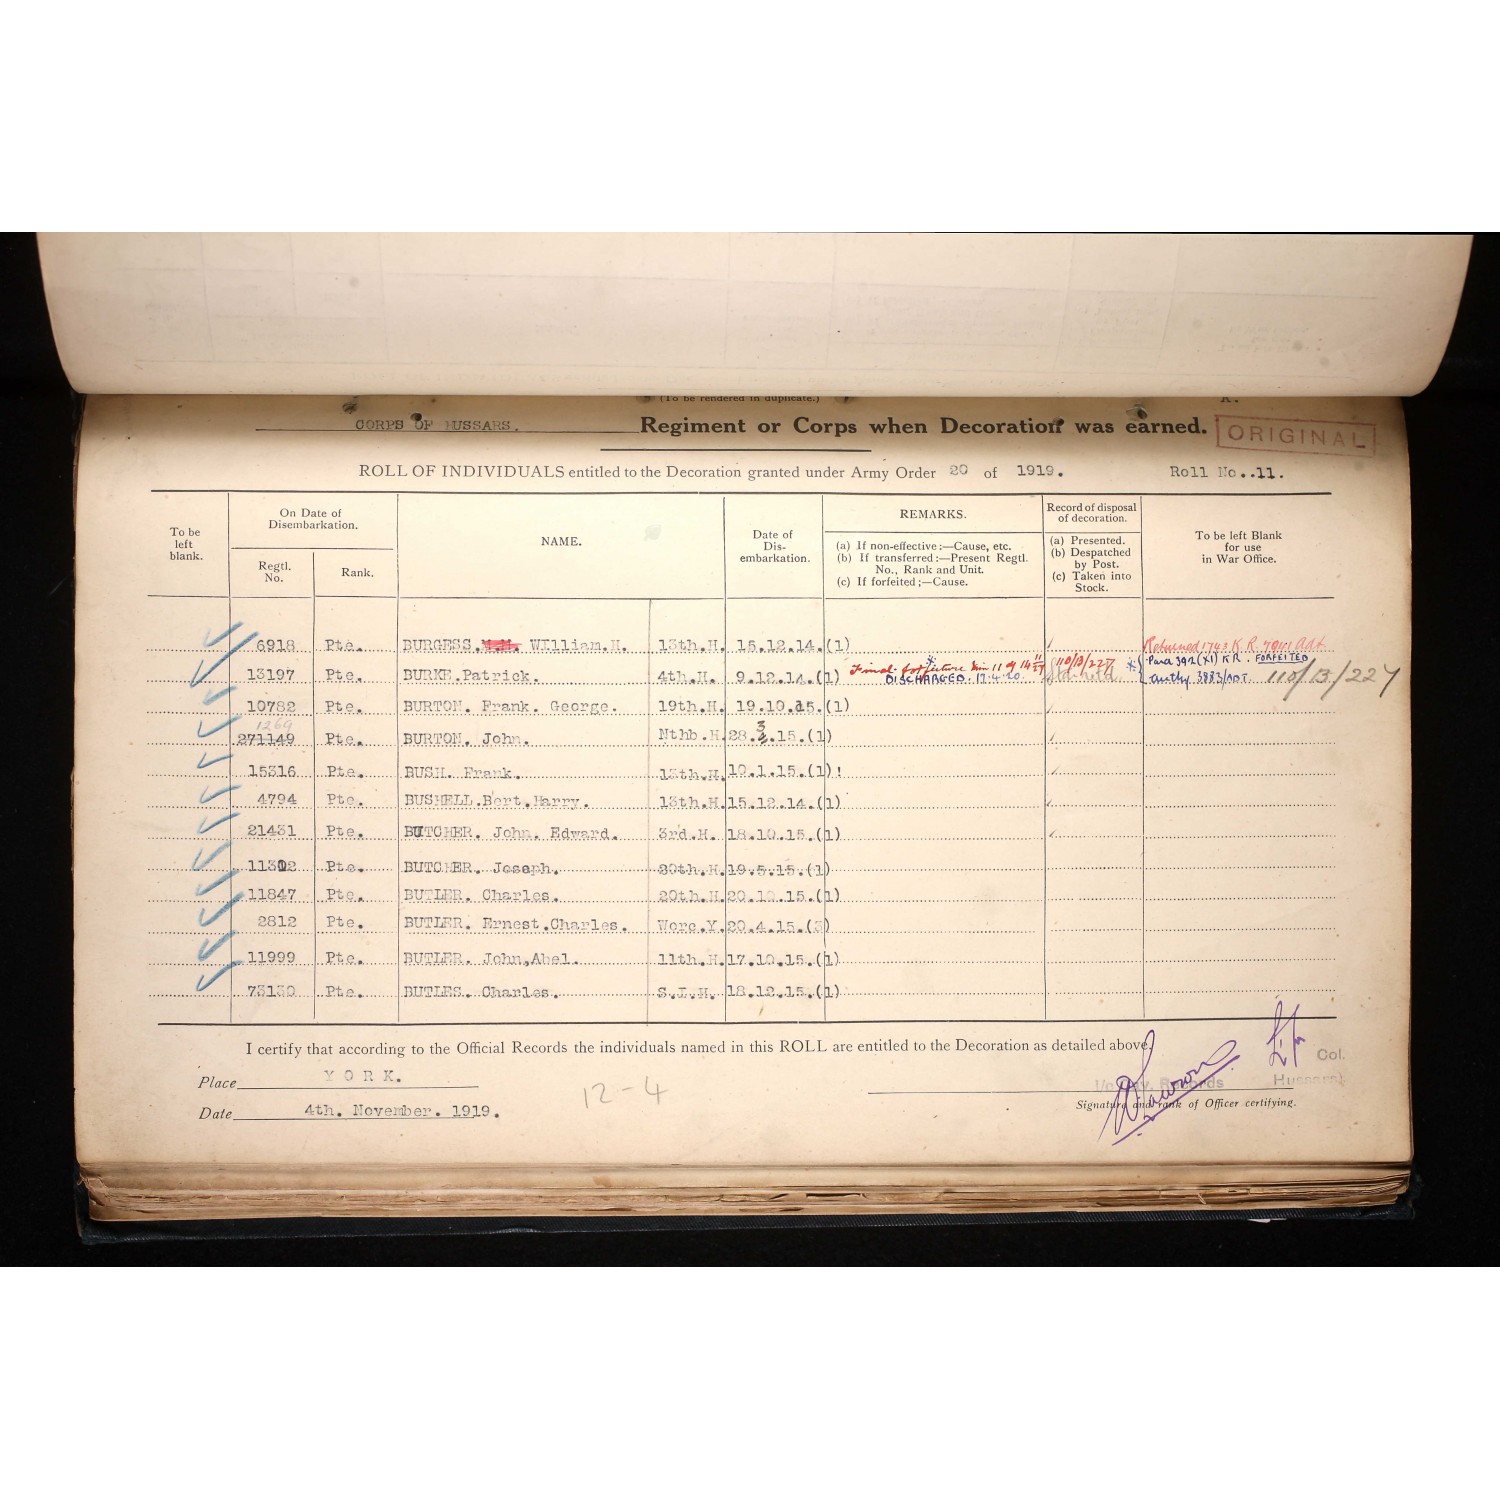 (To be rendered in duplicate.) A.
CORPS OF HUSSARS. Regiment or Corps when Decoration was earned. ORIGINAL
ROLL OF INDIVIDUALS entitled to the Decoration granted under Army Order 20 of 1919. Roll No..11.
To be left blank.
On Date of Disembarkation.
Regtl. No.
Rank.
NAME.
Date of Dis-embarkation.
REMARKS.
(a) If non-effective:—Cause, etc.
(b) If transferred:—Present Regtl. No., Rank and Unit.
(c) If forfeited;—Cause.
Record of disposal of decoration.
(a) Presented.
(b) Despatched by Post.
(c) Taken into Stock.
To be left Blank for use in War Office.
6918 Pte. BURGESS. WIlliam.H. 13th.H. 15.12.14.(1) Returned 1743 K.R. Adt.
13197 Pte. BURKE.Patrick. 4th.H. 9.12.14.(1) Final forfeiture DISCHARGED. 17.4.20. 110/13/227 Para 392(XI) K R. FORFEITED
authy 3883/ADT. 110/13/227
10782 Pte. BURTON. Frank. George. 19th.H. 19.10.15.(1)
1269
271149 Pte. BURTON. John. Nthb.H. 28.3.15.(1)
15316 Pte. BUSH. Frank. 13th.H. 10.1.15.(1)!
4794 Pte. BUSHELL.Bert.Harry. 13th.H. 15.12.14.(1)
21431 Pte. BUTCHER. John. Edward. 3rd.H. 18.10.15.(1)
11302 Pte. BUTCHER. Joseph. 20th.H. 19.5.15.(1)
11847 Pte. BUTLER. Charles. 20th.H. 20.10.15.(1)
2812 Pte. BUTLER. Ernest.Charles. Worc.Y. 20.4.15.(3)
11999 Pte. BUTLER. John,Abel. 11th.H. 17.10.15.(1)
73130 Pte. BUTLES. Charles. S.I.H. 18.12.15.(1)
I certify that according to the Official Records the individuals named in this ROLL are entitled to the Decoration as detailed above.
Place YORK. Col.
Records Hussars
Date 4th. November. 1919. 12-4 Signature and rank of Officer certifying.